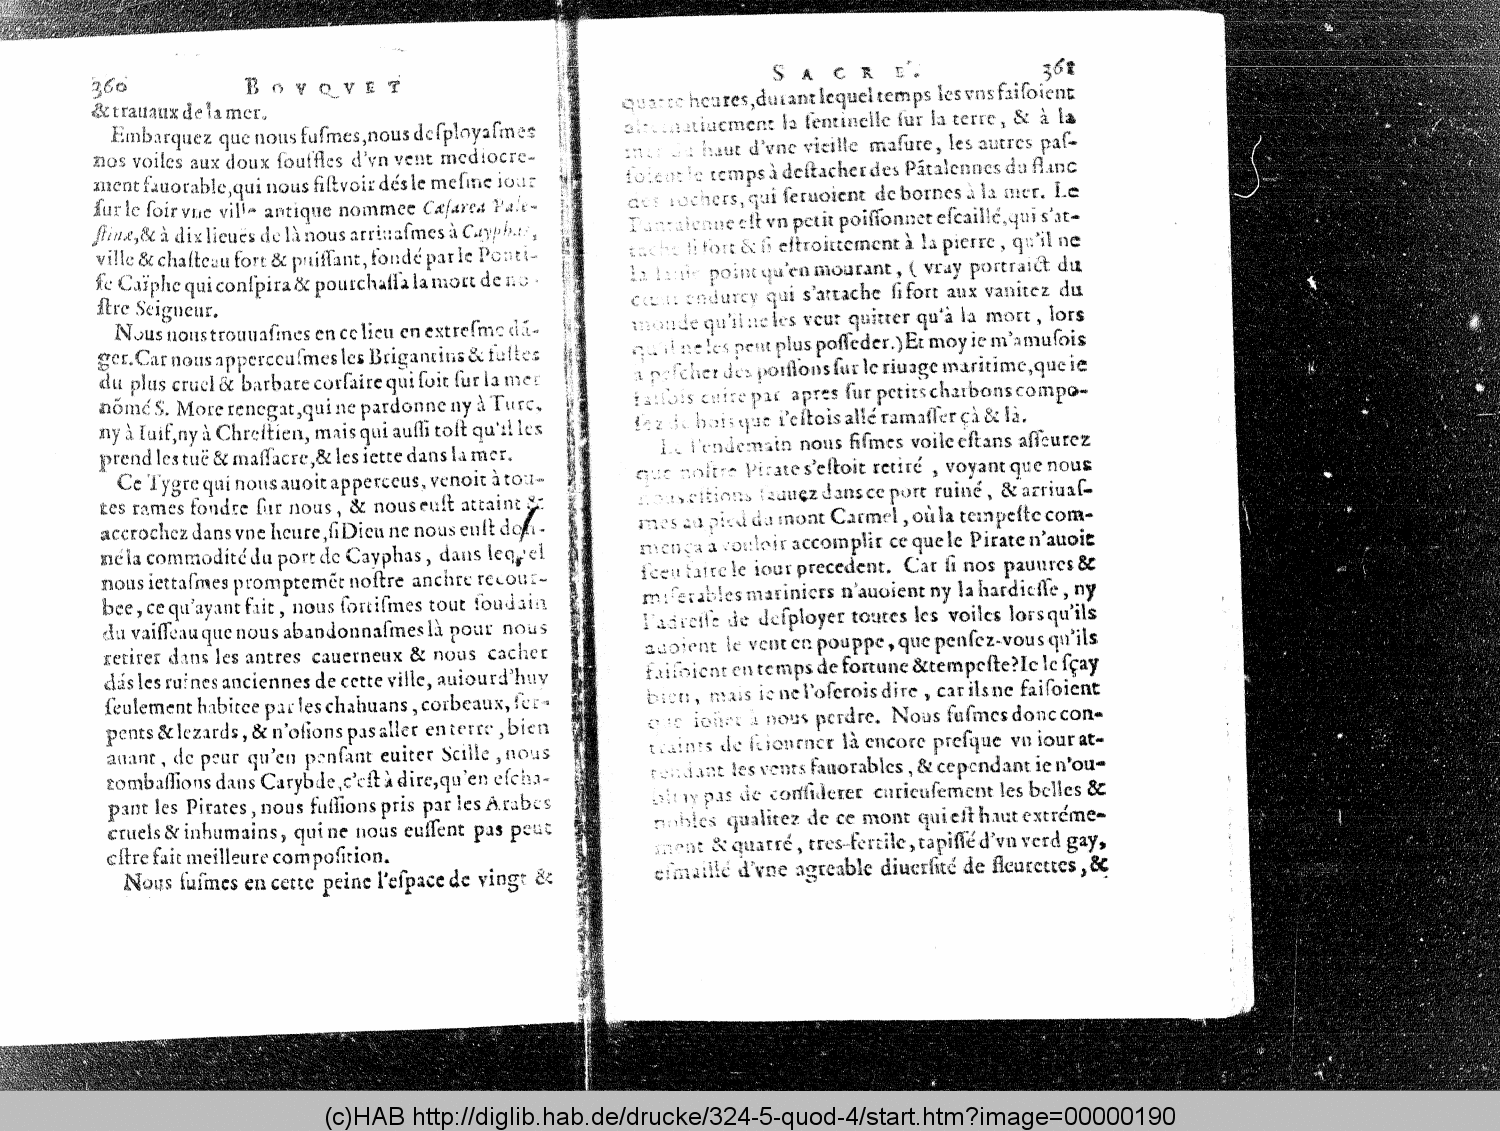 360 BOVQVET
& trauaux de la mer.
Embarquez que nous fuſmes, nous deſployaſmes
nos voiles aux doux ſouffles d'vn vent mediocre-
ment fauorable, qui nous fiſt voir dés le meſme iour
ſur le ſoir vne ville antique nommee Cæſarea Pale-
ſtinæ, & à dix lieuës de là nous arriuaſmes à Cayphas,
ville & chaſteau fort & puiſſant, fondé par le Ponti-
fe Caïphe qui conſpira & pourchaſſa la mort de no-
ſtre Seigneur.
Nous nous trouuaſmes en ce lieu en extreſme dã-
ger. Car nous apperceuſmes les Brigantins & fuſtes
du plus cruel & barbare corſaire qui ſoit ſur la mer
nõmé S. More renegat, qui ne pardonne ny à Turc,
ny à Iuif, ny à Chreſtien, mais qui auſſi toſt qu'il les
prend les tuë & maſſacre, & les iette dans la mer.
Ce Tygre qui nous auoit apperceus, venoit à tou-
tes rames fondre ſur nous, & nous euſt attaint &
accrochez dans vne heure, ſi Dieu ne nous euſt don-
né la commodité du port de Cayphas, dans lequel
nous iettaſmes promptemẽt noſtre anchre recour-
bee, ce qu'ayant fait, nous ſortiſmes tout ſoudain
du vaiſſeau que nous abandonnaſmes là pour nous
retirer dans les antres cauerneux & nous cacher
dãs les ruines anciennes de cette ville, auiourd'huy
ſeulement habitee par les chahuans, corbeaux, ſer-
pents & lezards, & n'oſions pas aller en terre, bien
auant, de peur qu'en penſant euiter Scille, nous
tombaſſions dans Carybde, c'eſt à dire, qu'en eſcha-
pant les Pirates, nous fuſſions pris par les Arabes
cruels & inhumains, qui ne nous euſſent pas peut
eſtre fait meilleure compoſition.
Nous fuſmes en cette peine l'eſpace de vingt &
SACRE'. 361
quatre heures, durant lequel temps les vns faiſoient
alternatiuement la ſentinelle ſur la terre, & à la
mer du haut d'vne vieille maſure, les autres paſ-
ſoient le temps à deſtacher des Pãtalennes du flanc
des rochers, qui ſeruoient de bornes à la mer. Le
Pantalenne eſt vn petit poiſſonnet eſcaillé, qui s'at-
tache ſi fort & ſi eſtroittement à la pierre, qu'il ne
la point qu'en mourant, ( vray portraict du
cœur endurcy qui s'attache ſi fort aux vanitez du
monde qu'il ne les veut quitter qu'à la mort, lors
qu'il ne les peut plus poſſeder.) Et moy ie m'amuſois
a peſcher des poiſſons ſur le riuage maritime, que ie
faiſois cuire par apres ſur petits charbons compo-
ſez de bois que i'eſtois allé ramaſſer çà & là.
Le l'endemain nous fiſmes voile eſtans aſſeurez
que noſtre Pirate s'eſtoit retiré, voyant que nous
nous eſtions ſauuez dans ce port ruiné, & arriuaſ-
mes au pied du mont Carmel, où la tempeſte com-
mença a vouloir accomplir ce que le Pirate n'auoit
ſceu faire le iour precedent. Car ſi nos pauures &
miſerables mariniers n'auoient ny la hardieſſe, ny
l'adreſſe de deſployer toutes les voiles lors qu'ils
auoient le vent en pouppe, que penſez-vous qu'ils
faiſoient en temps de fortune & tempeſte? Ie le ſçay
bien, mais ie ne l'oſerois dire, car ils ne faiſoient
que ioüer à nous perdre. Nous fuſmes donc con-
traints de ſeiourner là encore preſque vn iour at-
tendant les vents fauorables, & cependant ie n'ou-
bliay pas de conſiderer curieuſement les belles &
nobles qualitez de ce mont qui eſt haut extréme-
ment & quarré, tres-fertile, tapiſſé d'vn verd gay,
eſmaillé d'vne agreable diuerſité de fleurettes, &
(c)HAB http://diglib.hab.de/drucke/324-5-quod-4/start.htm?image=00000190